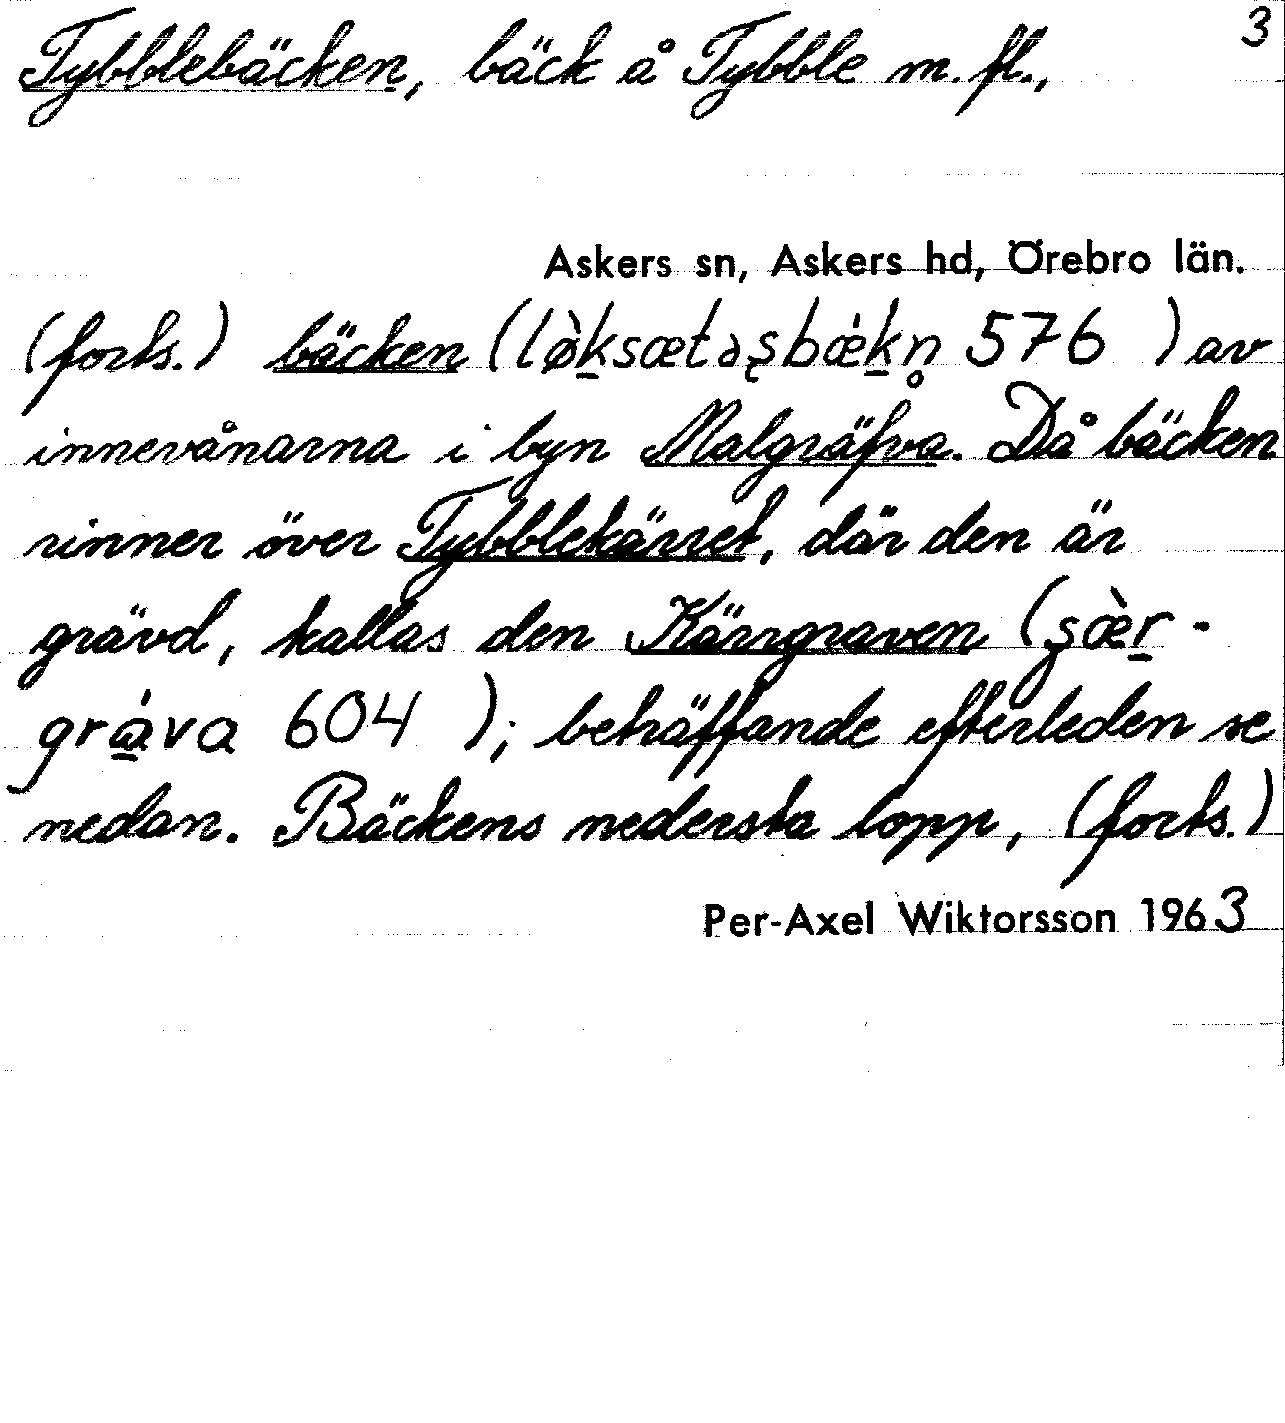 3
Tybblebäcken, bäck å Tybble m. fl.,
Askers sn, Askers hd, Örebro län.
(forts.) bäcken (lø̀k̲sætəʂbǽk̲n̥ 576 ) av
innevånarna i byn Malgräfva. Då bäcken
rinner över Tybblekärret, där den är
grävd, kallas den Kärrgraven (
604 ); beträffande efterleden se
nedan. Bäckens nedersta lopp, (forts.)
Per-Axel Wiktorsson 1963